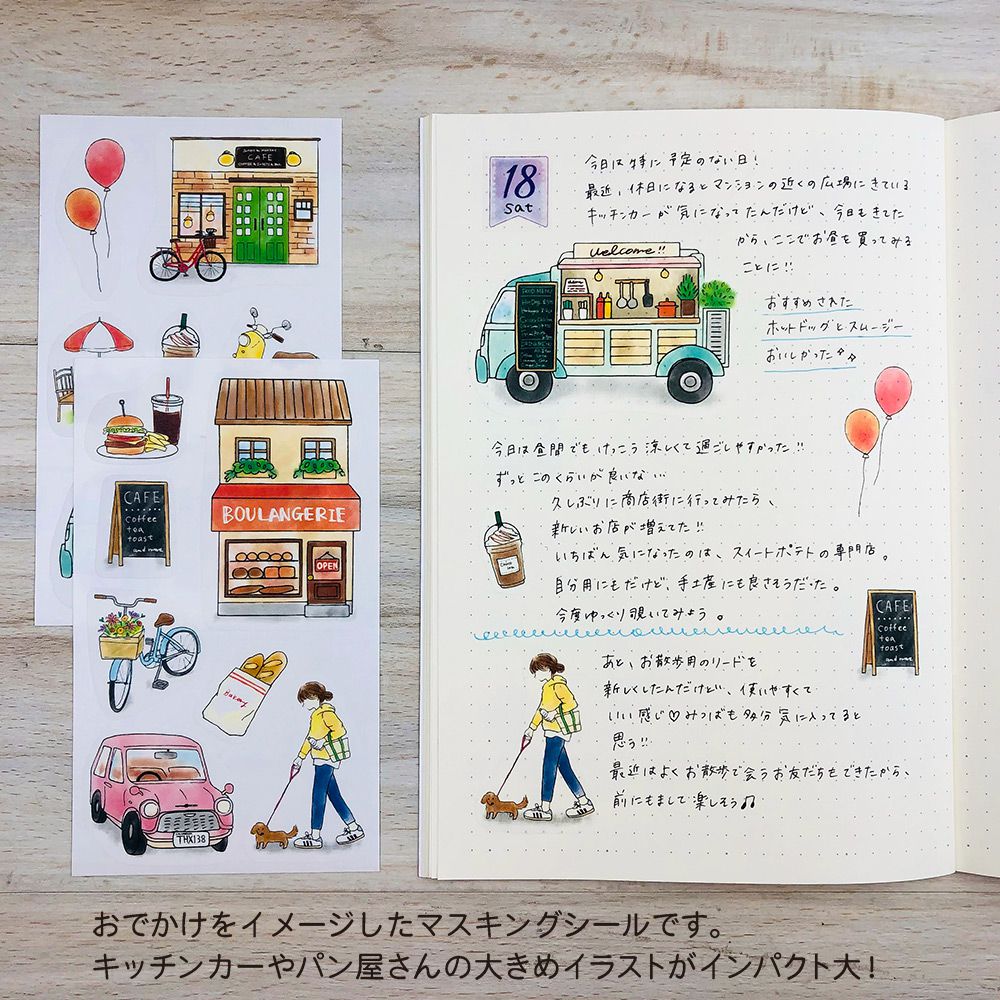 CAFE
BOULANGERIE
OPEN
CAFE
coffee
tea
toast
and more
Bakery
THX138
18
sat
今日は特に予定のない日!
最近、休日になるとマンションの近くの広場にきている
キッチンカーが気になってたんだけど、今日もきてた
から、ここでお昼を買ってみる
ことに!!
welcome!!
FOOD MENU
おすすめされた
ホットドッグとスムージー
おいしかった
今日は昼間でもけっこう涼しくて過ごしやすかった!!
ずっとこのくらいが良いな…
久しぶりに商店街に行ってみたら、
新しいお店が増えてた!!
いちばん気になったのは、スイートポテトの専門店。
自分用にもだけど、手土産にも良さそうだった。
今度ゆっくり覗いてみよう。
CAFE
coffee
tea
toast
and more
あと、お散歩用のリードを
新しくしたんだけど、使いやすくて
いい感じ♡みつばも多分気に入ってると
思う!!
最近はよくお散歩で会うお友だちもできたから、
前にもまして楽しそう♫
おでかけをイメージしたマスキングシールです。
キッチンカーやパン屋さんの大きめイラストがインパクト大!